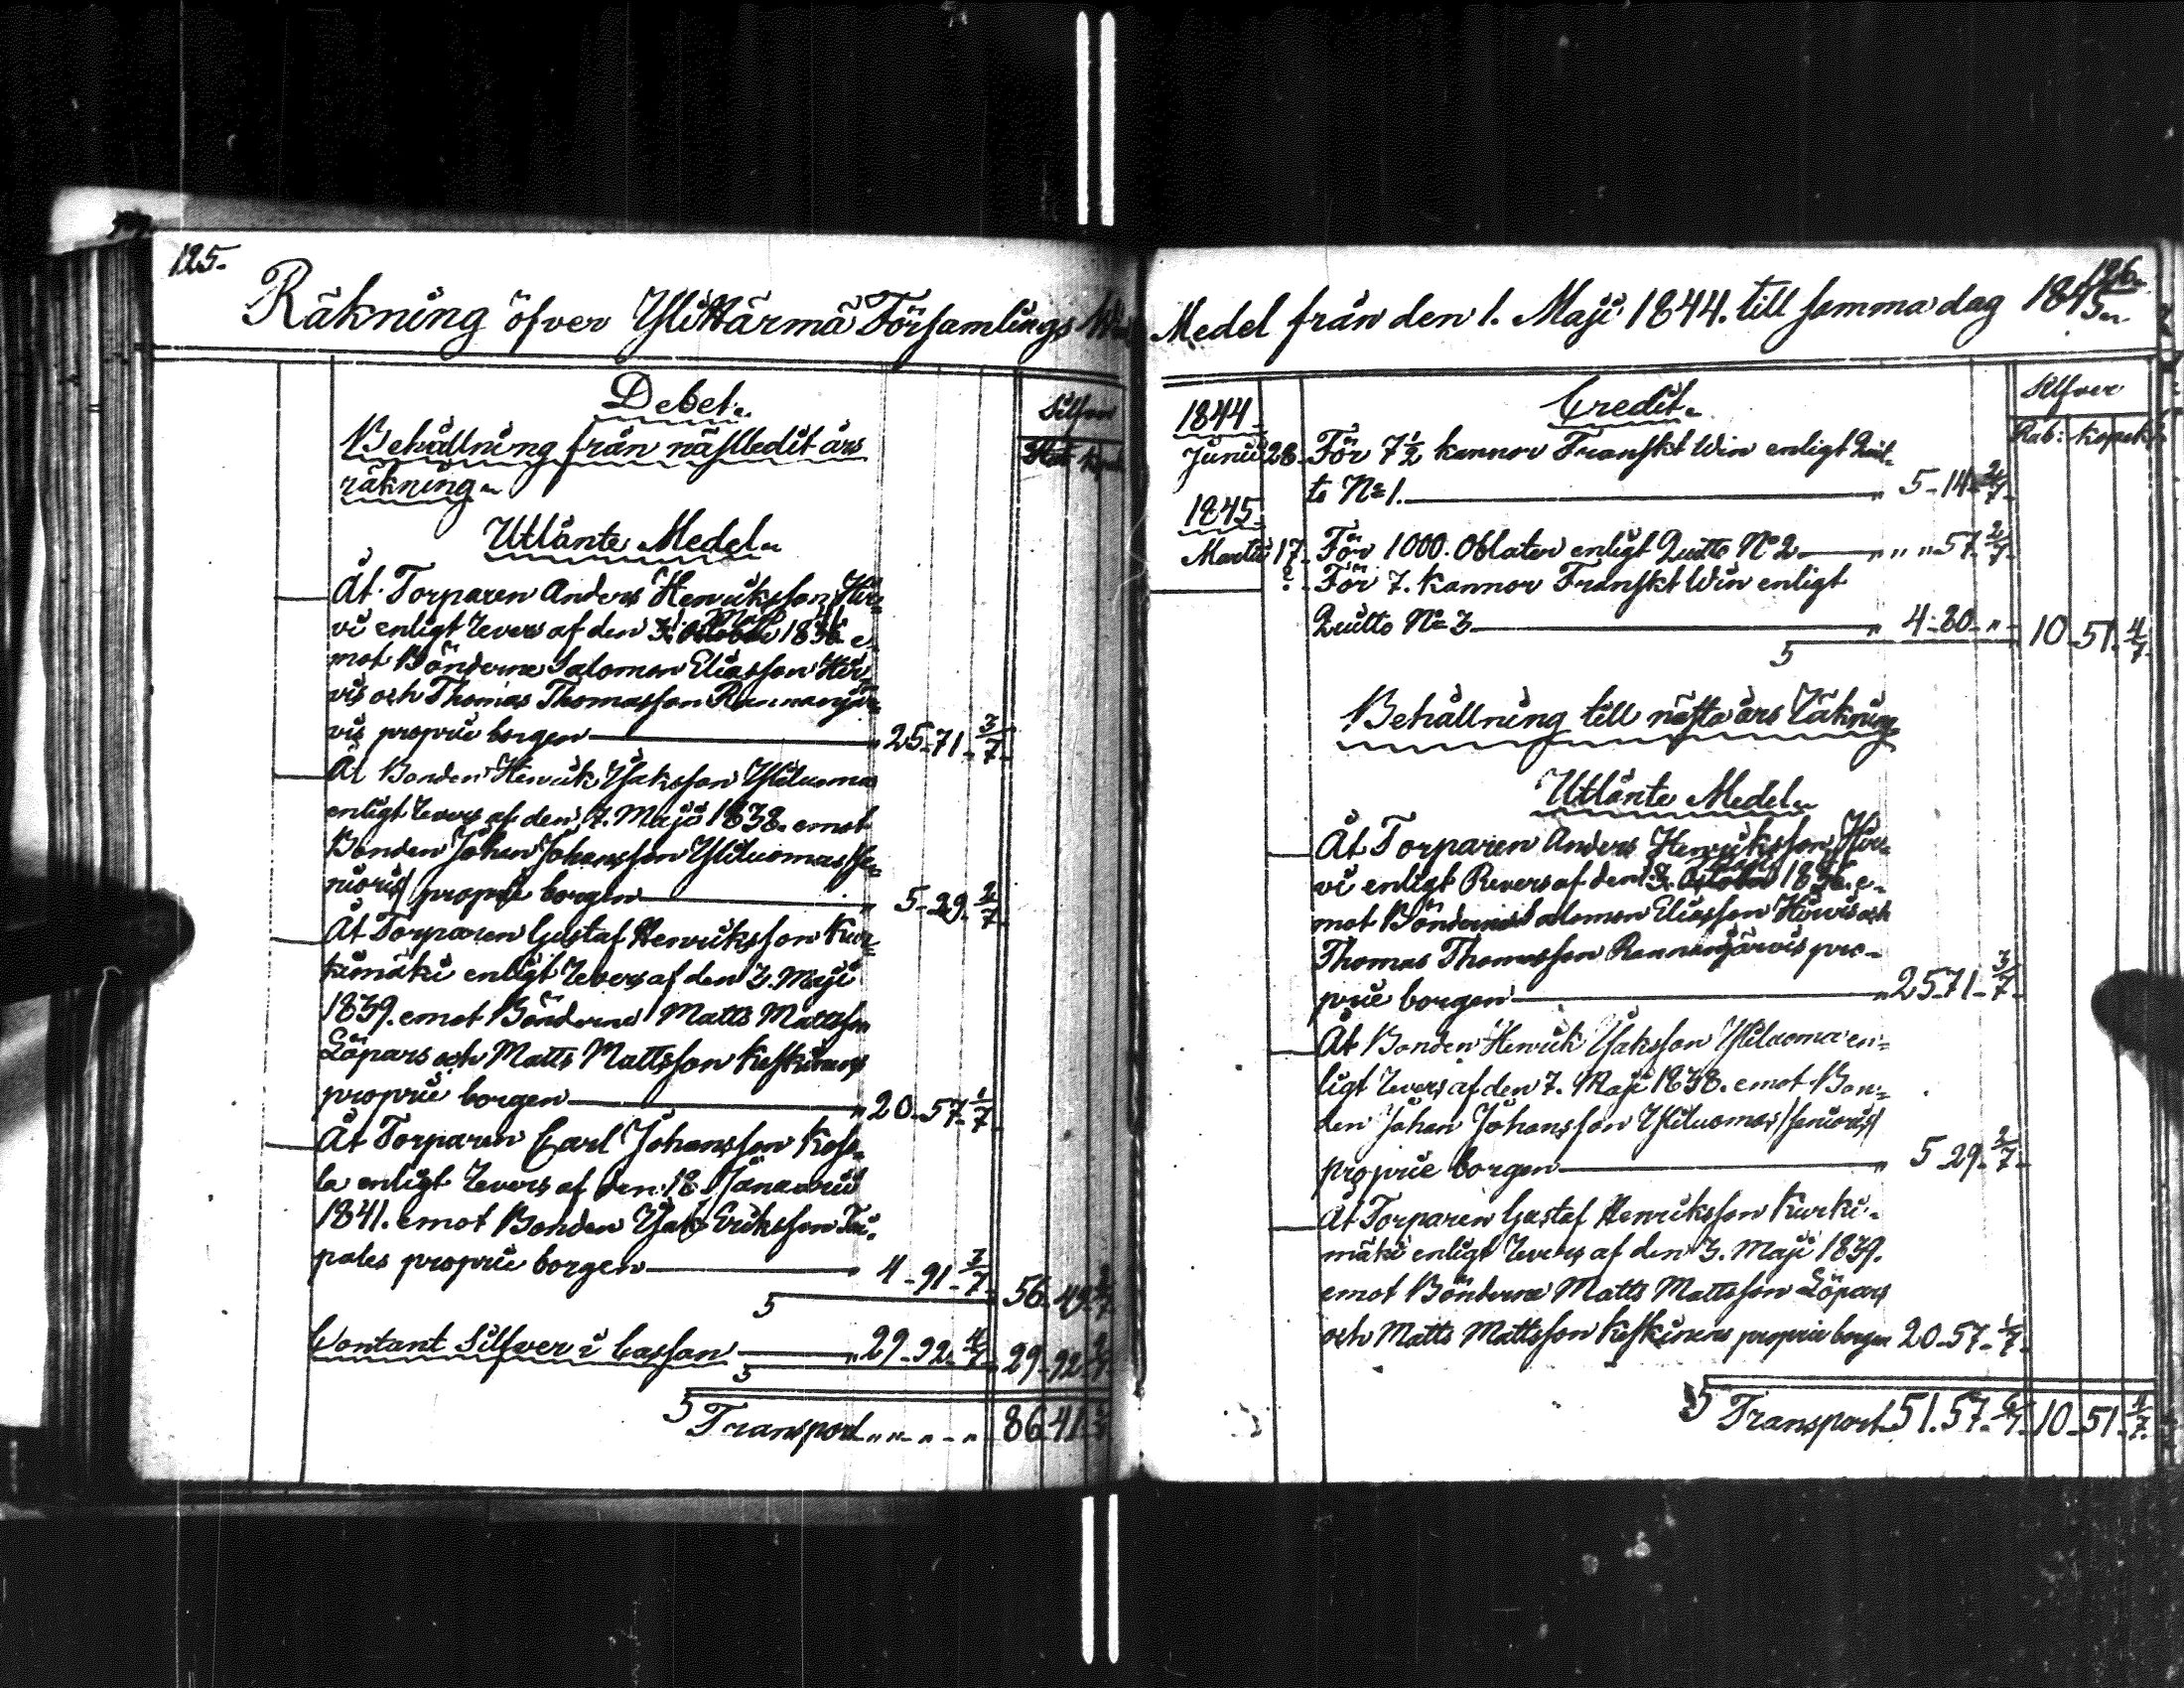 125.
Räkning öfver Ylihärmä Församlings
Debet.
Silfver
Behållning från nästledit års
räkning.
Utlånte Medel.
Åt Torparen Anders Henriksson Hir=
vi enligt Revers af den 3. Maji 1836 e=
mot Bönderne Salomon Eliasson Hir=
vis och Thomas Thomasson Rannanjär=
vis proprie borgen " 25-71-3/7
Åt Bonden Henrik Isaksson Yliluoma
enligt Revers af den 7. Maji 1838. emot
Bonden Johan Johansson Yliluomas /se=
nioris/ proprie borgen " 5-29-2/7
Åt Torparen Gustaf Henriksson Kur=
kimäki enligt Revers af den 3. Maji
1839. emot Bönderne Matts Mattsson
Löpars och Matts Mattsson Keskinens
proprie borgen " 20-57-1/7
Åt Torparen Carl Johansson Kos=
la enligt Revers af den 18 Januarii
1841. emot Bonden Isak Eriksson Tai=
pales proprie borgen " 4-91-3/7
S 56-49-2/7
Contant Silfver i Cassan " 29-92-4/7
S 29-92-4/7
S Transport " " " " 86-41-6/7
126.
Medel från den 1. Maji 1844. till samma dag 1845.
Credit.
Silfver
Rub: kopek
1844
Junii 28. För 7 1/2 kannor Franskt Win enligt Quit=
to No 1. " 5-14-2/7
1845
Martii 17. För 1000. Oblater enligt Quitto No 2 " " " 57-2/7
För 7. kannor Franskt Win enligt
Quitto No 3 " 4-80-" 10 51 4/7
S
Behållning till nästa års Räkning
Utlånte Medel.
Åt Torparen Anders Henriksson Hir=
vi enligt Revers af den 3. Maji 1836. e=
mot Bönderne Salomon Eliasson Hirvis och
Thomas Thomasson Rannanjärvis pro=
prie borgen " 25-71-3/7
Åt Bonden Henrik Isaksson Yliluoma en=
ligt Revers af den 7. Maji 1838. emot Bon=
den Johan Johansson Yliluomas /senioris/
proprie borgen " 5 29-2/7
Åt Torparen Gustaf Henriksson Kurki=
mäki enligt Revers af den 3. Maji 1839.
emot Bönderne Matts Mattsson Löpars
och Matts Mattsson Keskinens proprie borgen 20-57-1/7
S Transport 51.57-6/7 10-51-4/7